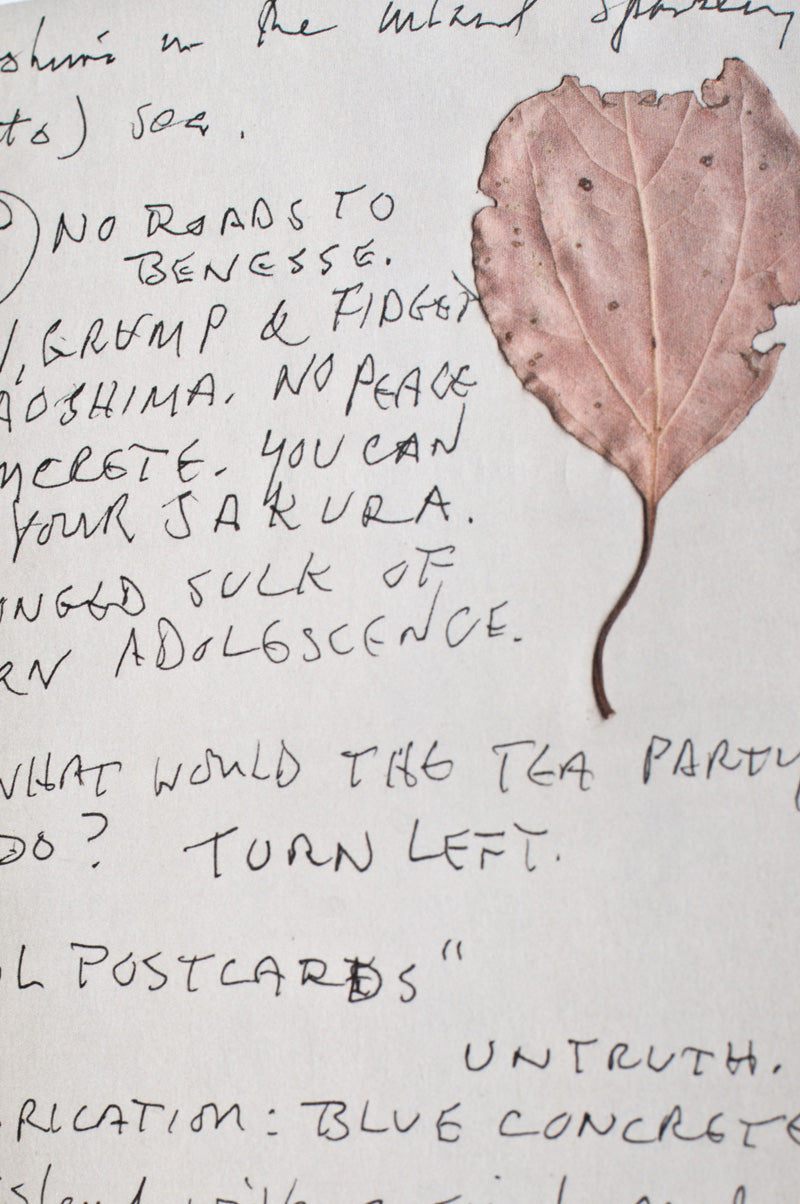 in the inland
to) sea.
NO ROADS TO
BENESSE.
, GRUMP & FIDGET
AOSHIMA. NO PEACE
NCRETE. YOU CAN
YOUR SAKURA.
ONGED SULK OF
RN ADOLESCENCE.
WHAT WOULD THE TEA PARTY
DO? TURN LEFT.
L POSTCARDS"
UNTRUTH.
RICATION: BLUE CONCRETE
island with a